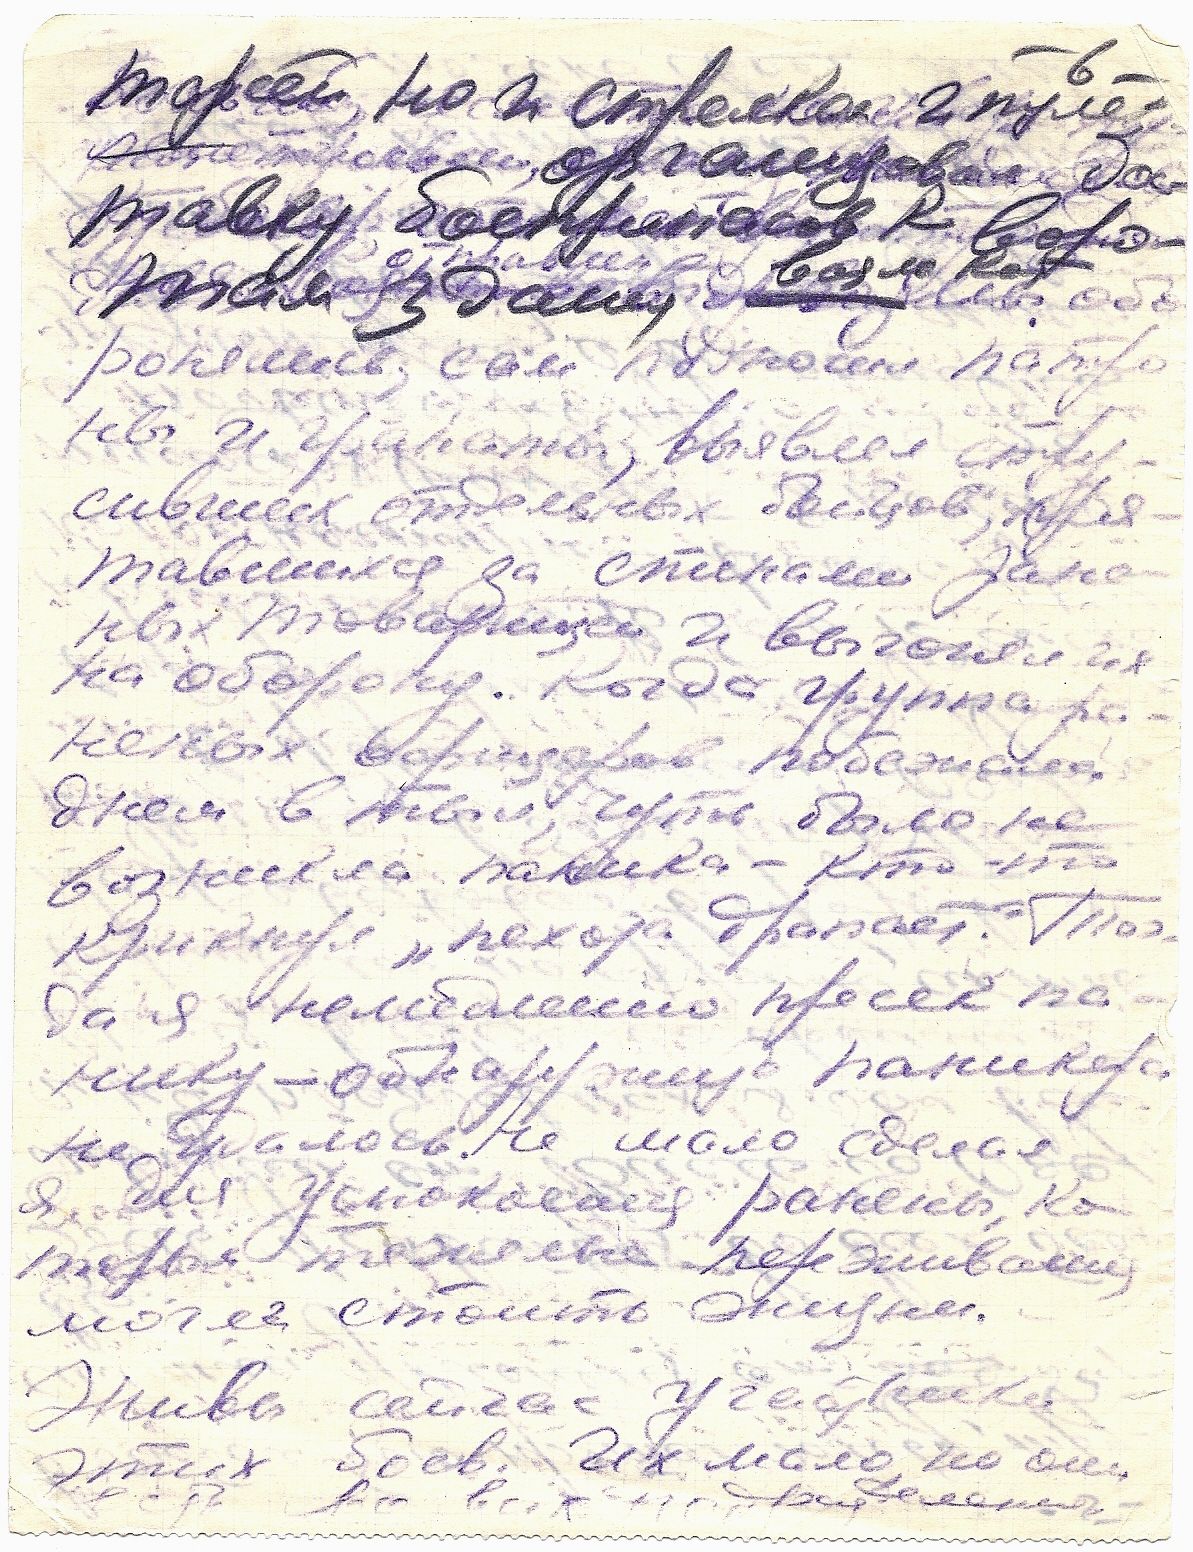 тарей, но и стрелков и пуле-
организовал дос-
тавку боеприпасов к воро-
там здания,
ронялись, сам подносил патро
ны и гранаты, выявлял стру-
сивших отдельных бойцов, пря-
тавшихся за спинами
ных товарищей и выгонял их
на оборону. Когда группа ра-
неных офицеров побежала
днем в тыл, чуть было не
возникла паника – кто-то
крикнул „пехота драпает." Тог-
да я немедленно пресек па-
нику – обнаружить паникера
не удалось. Не мало сделал
я для успокоения раненых, ко
торым
могли стоить жизни.
Живы сейчас участники
этих боев. Их мало, но они
во всех